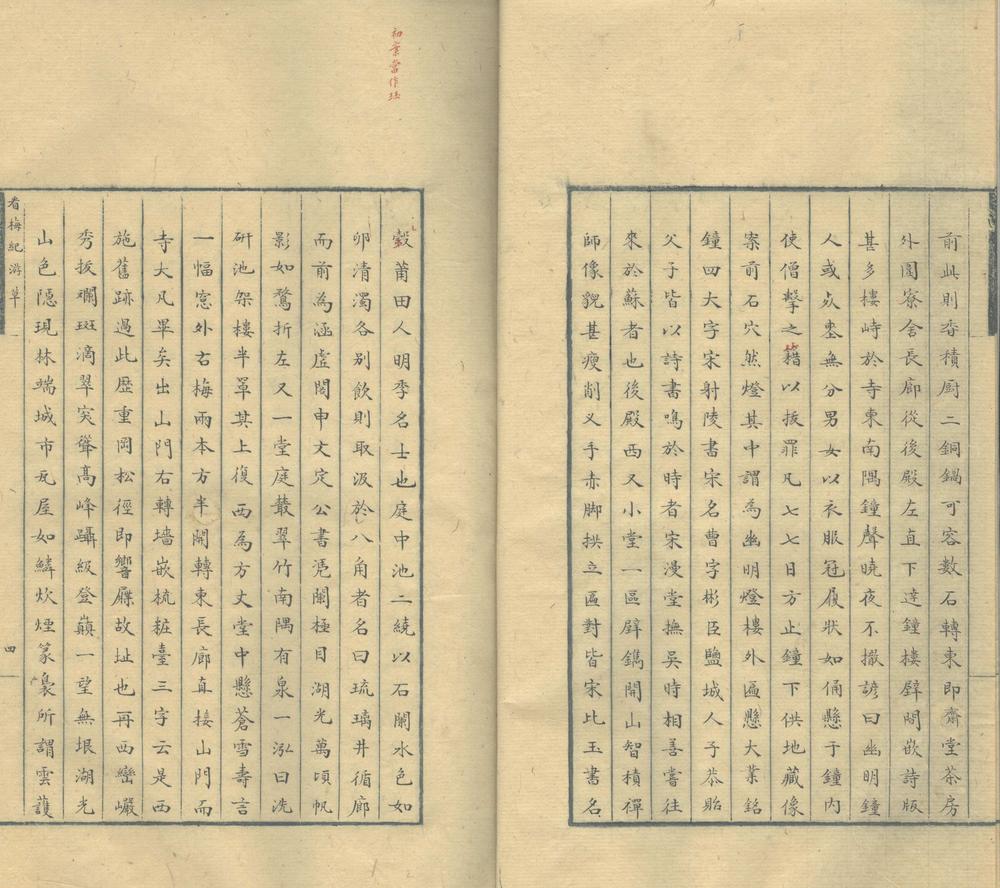 前此則香積厨二銅鍋可容數石轉東即齋堂茶房
外圍寮舍長廊從後殿左直下達鐘樓壁間嵌詩版
甚多樓峙於寺東南隅鐘聲曉夜不撤諺曰幽明鐘
人或歿垂無分男女以衣服冠履狀如俑懸于鐘內
使僧擊之藉以拔罪凡七七日方止鐘下供地藏像
案前石穴然燈其中謂為幽明燈樓外匾懸大業銘
鐘四大字宋射陵書宋名曹字彬臣鹽城人子恭貽
父子皆以詩書鳴於時者宋漫堂撫吳時相善嘗往
來於蘇者也後殿西又小堂一區壁鐫開山智積禪
師像貌甚瘦削叉手赤脚拱立區對皆宋比玉書名
瑴莆田人明季名士也庭中池二繞以石闌水色如
卯清濁各別飲則取汲於八角者名曰琉璃井循廊
而前為涵虛閣申文定公書凭闌極目湖光萬頃帆
影如鶩折左又一堂庭叢翠竹南隅有泉一泓曰洗
研池架樓半罩其上復西為方丈堂中懸蒼雪壽言
一幅窓外古梅兩本方半開轉東長廊直接山門而
寺大凡畢矣出山門右轉墻嵌梳粧臺三字云是西
施舊跡過此歷重岡松徑即響屧故址也再西巒巖
秀拔斕斑滴翠突聳高峰躡級登巔一望無垠湖光
山色隱現林端城市瓦屋如鱗炊煙篆裊所謂雲護
看梅紀游草
四
初案當作珏